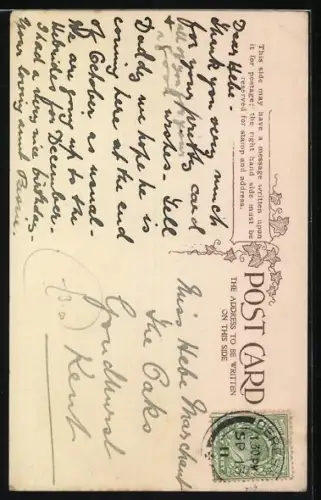 This side may have a message written upon
it (for postage); the right hand side must be
reserved for stamp and address.
POST CARD
THE ADDRESS TO BE WRITTEN
ON THIS SIDE
Dear Hebe -
Thank you very much
for your pretty card
+ good wishes - Tell
Daddy we hope he is
coming here at the end
of October as usual -
We are going up to the
Hebrides for December -
I had a very nice birthday -
Your loving aunt
Miss Hebe Marchant
The Oaks
Goudhurst
Kent
SP
11